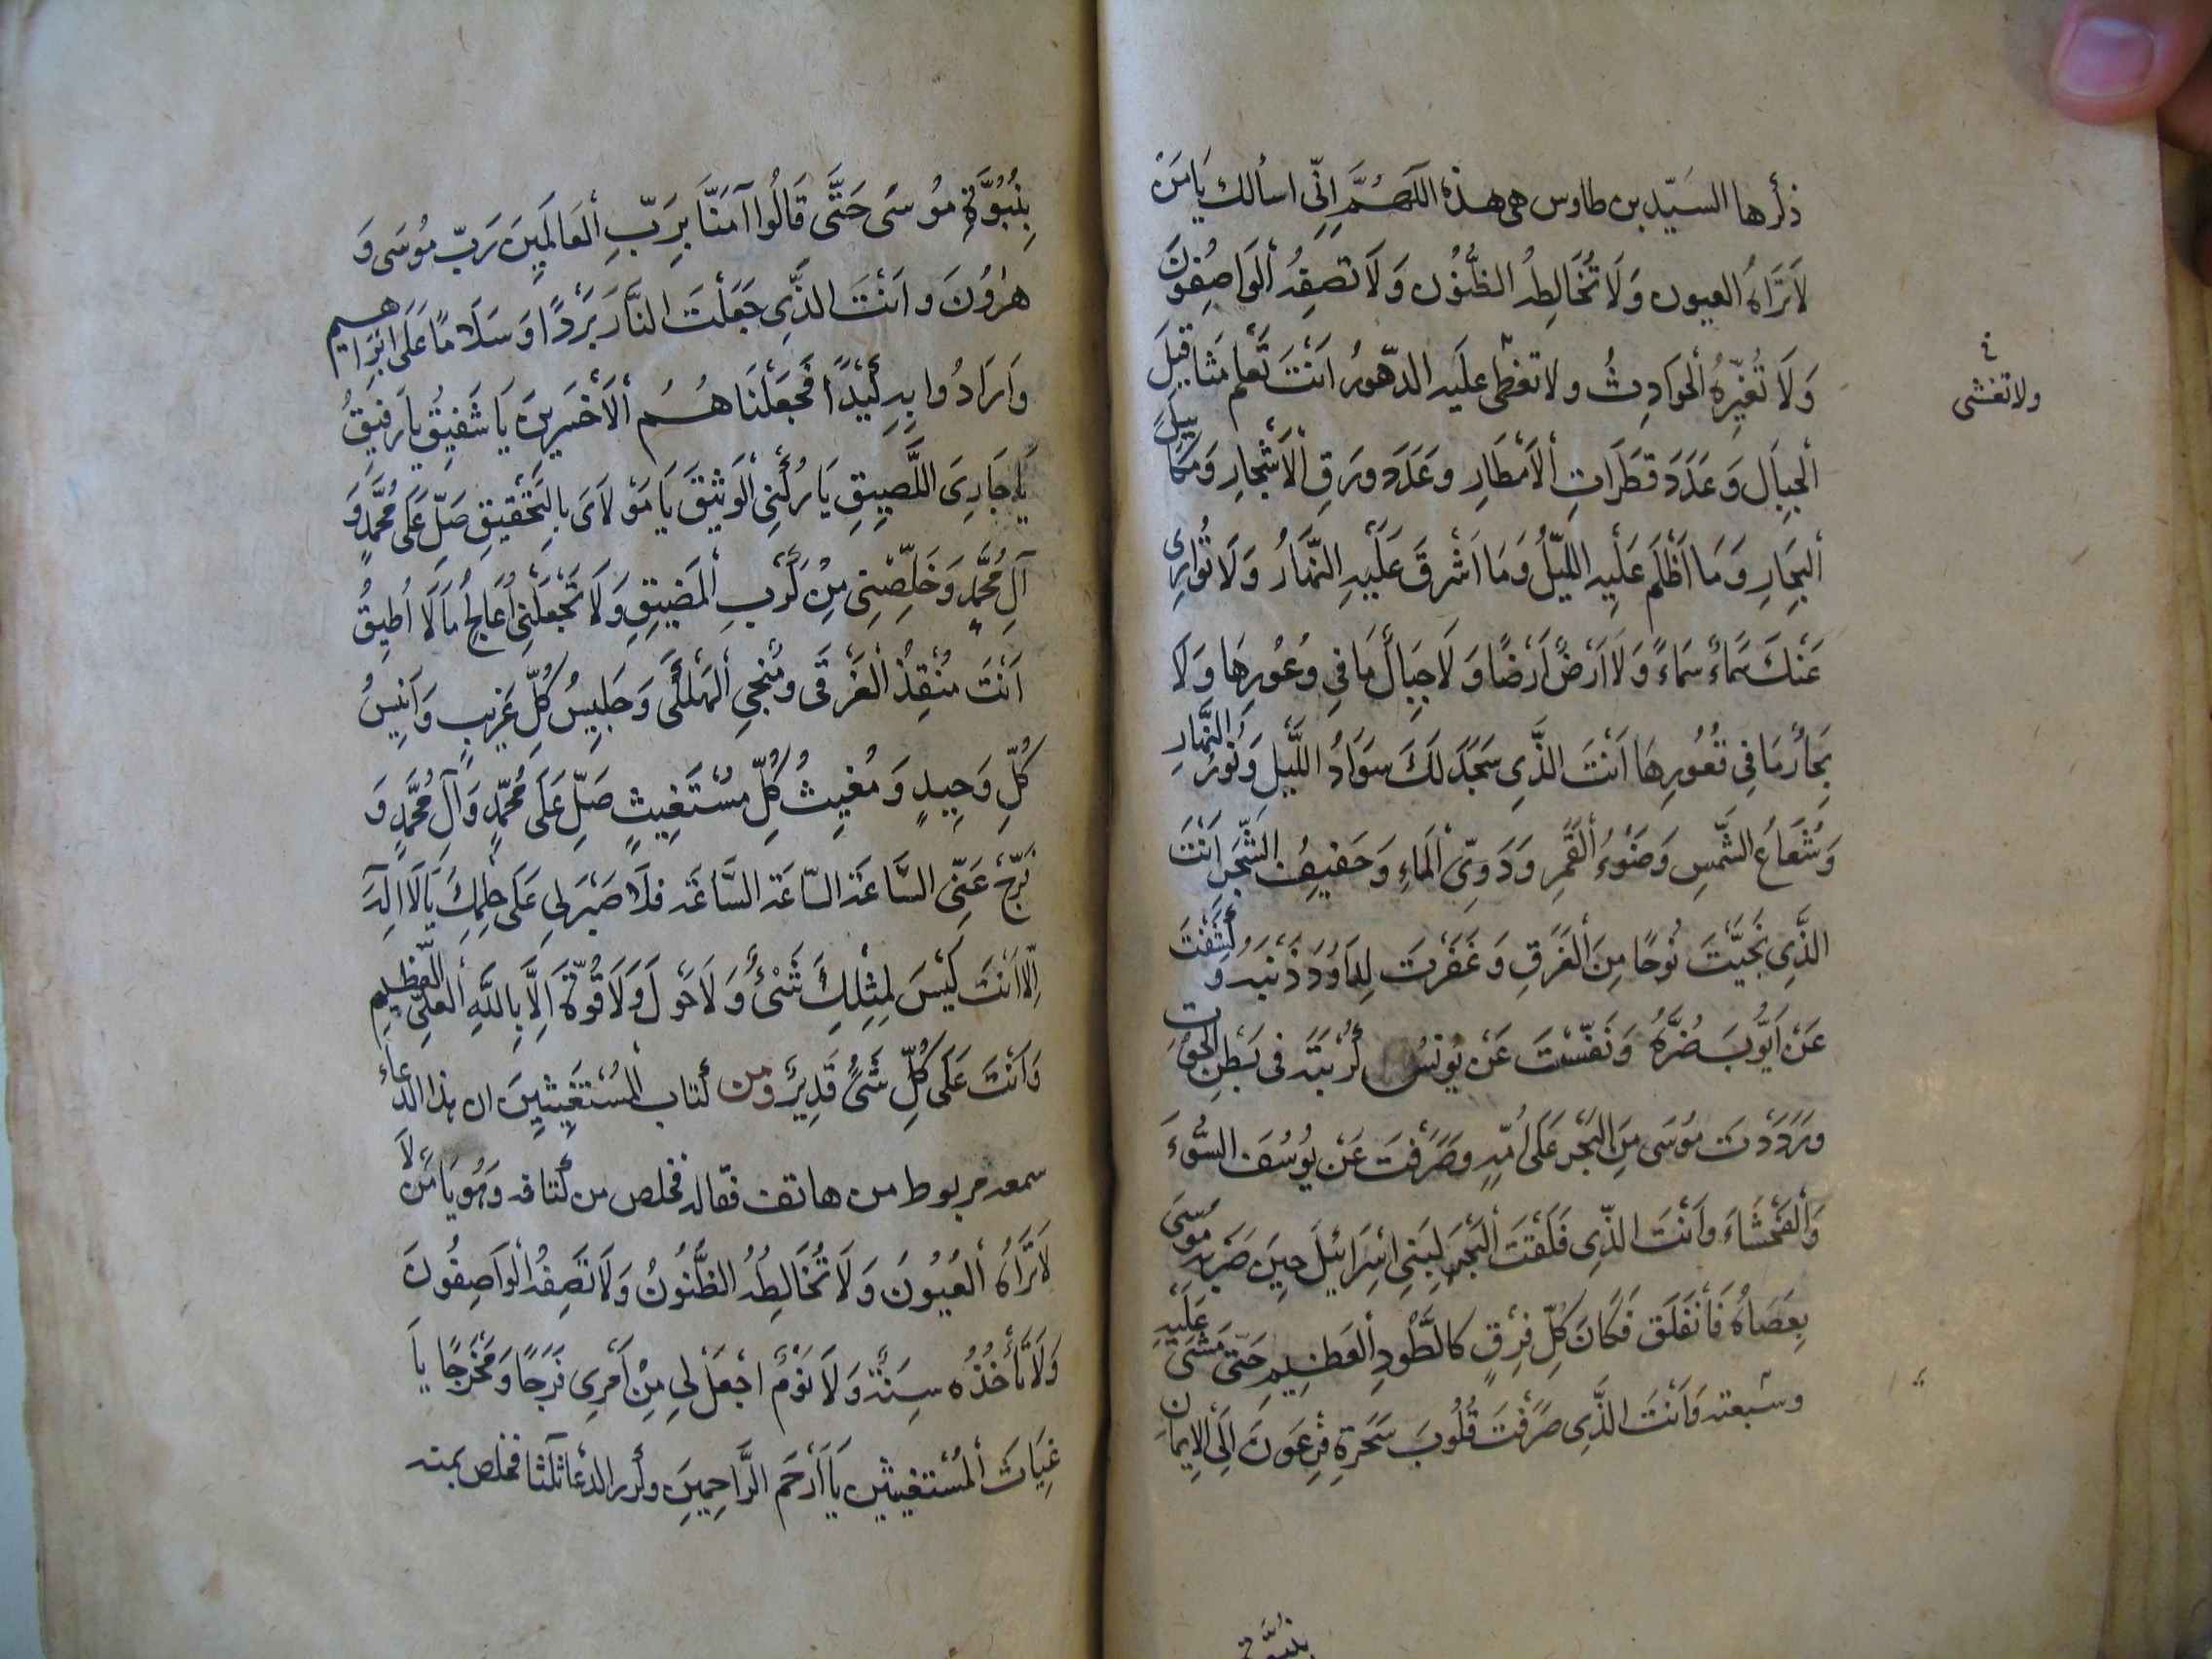 ذكرها السَيّد بن طاوس هى هذه اللَّهُمَّ اِنّى اسألك يَا مَنْ
لَا تَرَاهُ العيون وَلَا تُخَالِطُه الظُّنُوُن وَلَا تصِفُه ألوَاصِفُونَ
وَلَا تُغَيِّرهُ ألحَوَادِثُ ولا تغطى عليَه الدّهورُ اَنْتَ تَعْلم مَثَاقيلَ
ولا تغشى
ألجِبَال وَعَدَدَ قطَرَاتِ ألاَمْطَارِ وعَدَد ورَقِ ألاَشْجَارِ وَمَكَاييلَ
ألبِحَارِ وَمَا اَظْلَمَ عَلَيْهِ اللَيْلُ وَمَا اَشْرقَ عَلَيْهِ النَّهَارُ وَلَا تُوَارِى
عَنْكَ سَمَاءٌ سَمَاءً وَلَا اَرْضٌ اَرْضًا وَلَا جِبَالٌ مَا فِي وُعُورِهَا وَلَا
بِحَارٌ مَا فِي قُعُورِهَا اَنْتَ الذَّي سَجَدَ لَكَ سَوَادُ اللَّيْل وَنُورُ النَّهَارِ
وَشُعَاعُ الشَّمْسِ وَضَوْءُ ألقَمَرِ وَدَوِىّ ألمَاءِ وَحَفيفُ الشَّجَرِ اَنْتَ
الذَّي نَجَيَّتَ نُوحًا مِنَ ألغَرَقِ وَغَفَرْتَ لِدَاوُدَ ذَنْبَه وَكَشَفْتَ
عَنْ اَيُّوبَ ضُرَّهُ وَنَفَّسْتَ عَنْ يوُنُسُ كُرْبَتَه فى بَطْنِ الحُوْتِ
ورَدَدْتَ مُوسَى مِنَ البَحْر عَلَى اُمّهِ وصَرَفْتَ عَنْ يُوسُفَ السُّوءَ
وَألفَحْشَاءَ وانْتَ الذّي فَلَقْتَ ألبَحْرَ لِبَنِى اِسْرَائيْلَ حِينَ ضَرَبَه مُوسَىَ
بِعَصَاهُ فَانْفَلَقَ فَكَانَ كُلِّ فِرْقٍ كالطَّوْدِ ألعَظِيمِ حَتّى مَشَىَ عَلَيْهِ
وشيعته وَاَنْتَ الذَّي صَرَفْتَ قُلُوبَ سَحَرَةِ فِرْعَوَنَ اِلَى الاِيمَانِ
بِنُبُوَّةِ
بِنُبُوَّةِ مُوسَى حَتَّى قَالُوا آمَنَّا بِرَبّ ألعَالَمِينَ رَبّ مُوسَى وَ
هرُوُنَ واَنْتَ الذَّي جَعَلْتَ النَّارَ بَرْدًا وَسَلَامًا عَلَى اِبْرَاهيم
وَاَرَادُوا بِهِ كَيْدًا فَجَعَلْنَاهُمُ ألاَخْسَرِينَ يَا شَفيِقُ يا رَفيقُ
يَا جَارِىَ اللَّصِيقِ يَا رُكْنِى ألوَثيقَ يَا مَوْلَاىَ بالتَحْقيقِ صَلّ عَلَى مُحَمَّدٍ وَ
آلِ مُحَمَّدٍ وَخَلِّصْنِى مِنْ كَرْبِ ألمَضِيقِ وَلَا تَجْعَلْنِى اُعَالِجُ مَا لَا اُطيقُ
اَنْتَ مُنْقِذُ ألغَرْقَى ومُنْجي ألهَلْكَى وَجَليسُ كُلِّ غَريبٍ وَاَنيسُ
كُلِّ وَحِيدٍ وَمُغيِثُ كُلِّ مُسْتَغيثٍ صَلّ عَلَى مُحَمّدٍ وَآلِ مُحَمَّدٍ وَ
فَرّجْ عَنِّى السَّاعَة السّاعَة السَّاعَة فلَا صَبْرَ لِى عَلَى حِلمِكَ يَا لَا اِلَهَ
اِلّا اَنْتَ لَيْسَ لِمِثْلِكَ شَىْءٌ وَلَا حَوْلَ وَلَا قُوّةَ اِلَّا بِاللَّهِ ألعَلىّ العَظيِمِ
وَاَنْتَ عَلَى كُلِّ شَىْءٍ قَدِيرٌ ومن كتاب المُسْتَغِيثينَ ان هذا الدّعاء
سمعه مربوط من هاتف فقاله فخلص من كتافه وَهُو يَا مَنْ لَا
لَا تَرَاهُ ألعُيُونَ وَلَا تُخَالِطُهُ الظُّنُونُ وَلَا تَصِفُه ألوَاصِفُونَ
وَلَا تَأْخُذُه سِنَةٌ وَلَا نَوْمٌ اجْعَلْ لِى مِنْ اَمْرِى فَرَجًا وَمَخْرَجًا يا
غِيَاثَ ألمُسْتَغيثين يَا اَرْحَمَ الرَّاحِمِينَ وكرر الدعا ثلثا فخلص بمنه